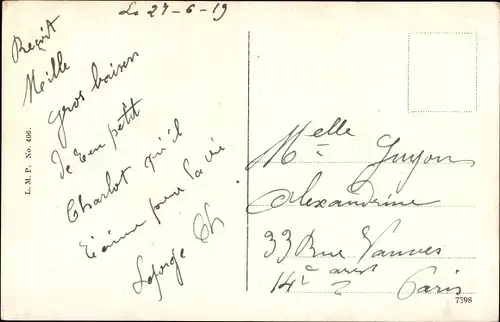 Le 27-6-19
Reçoit
Mille
gros baisers
de ton petit
Charlot qu'il
t'aime pour la vie
Laforge Ch
Melle Guyon
Alexandrine
33 Rue Vanves
14e arrt
Paris
L. M. P. No. 406.
7398